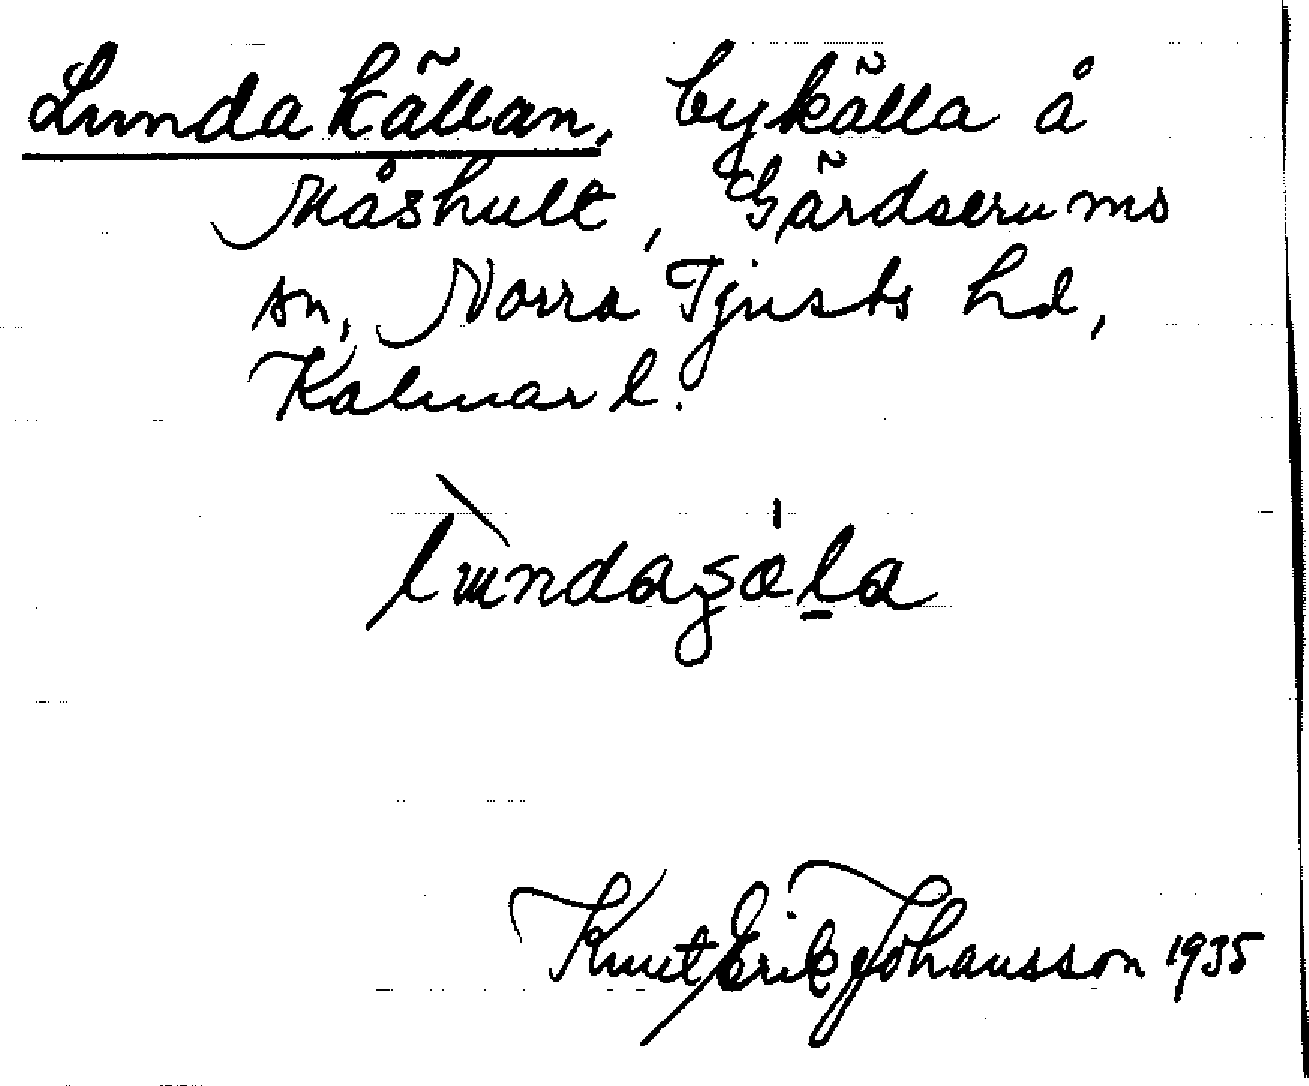 Lundakällan, bykälla å
Måshult, Gärdserums
sn, Norra Tjusts hd,
Kalmar l.
Knut Erik Johansson 1935